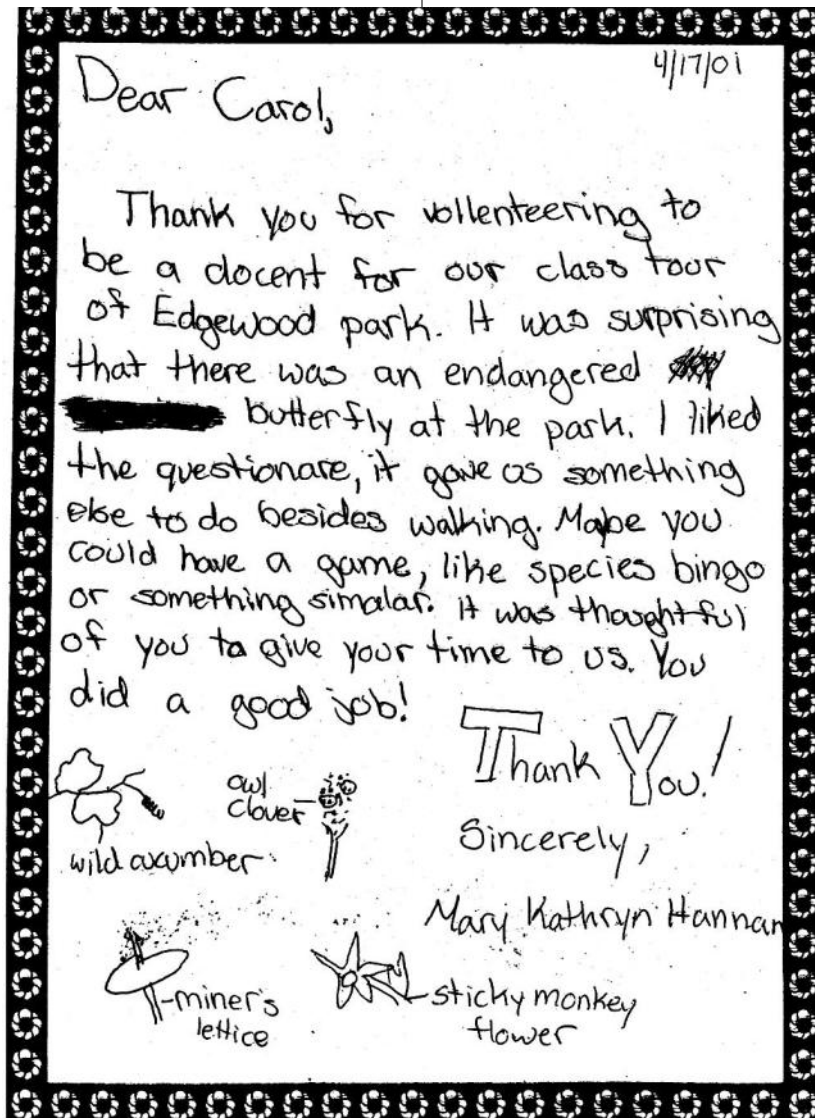 4/17/01
Dear Carol,
Thank you for vollenteering to
be a docent for our class tour
of Edgewood park. It was surprising
that there was an endangered
butterfly at the park. I liked
the questionare, it gave us something
else to do besides walking. Mabe you
could have a game, like species bingo
or something simalar. It was thoughtful
of you to give your time to us. You
did a good job!
Thank You!
Sincerely,
Mary Kathryn Hannan
wild cucumber
owl
clover
miner's
lettice
sticky monkey
flower